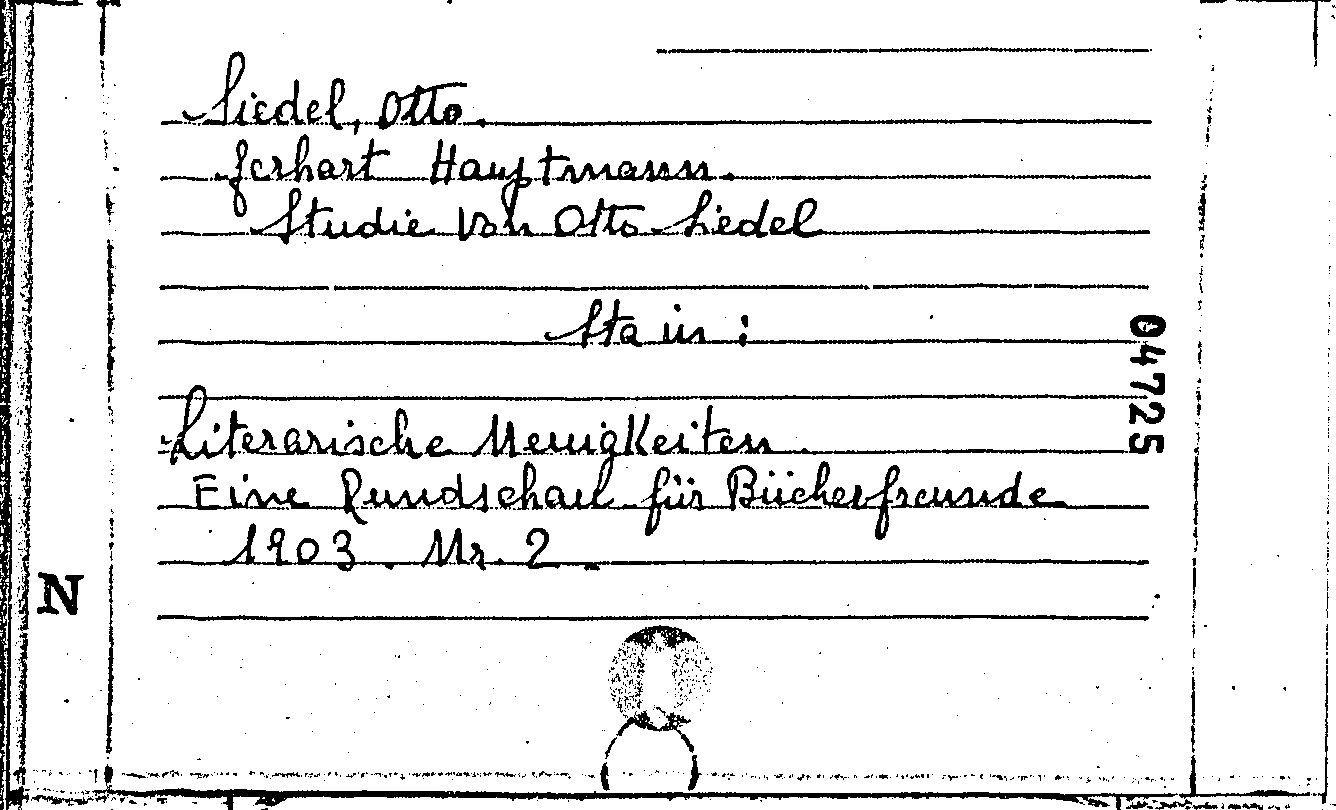 Siedel, Otto.
Gerhart Hauptmann.
Studie von Otto Siedel
Sta in :
04725
Literarische Neuigkeiten
Eine Rundschau für Bücherfreunde
1903. Nr. 2.
N